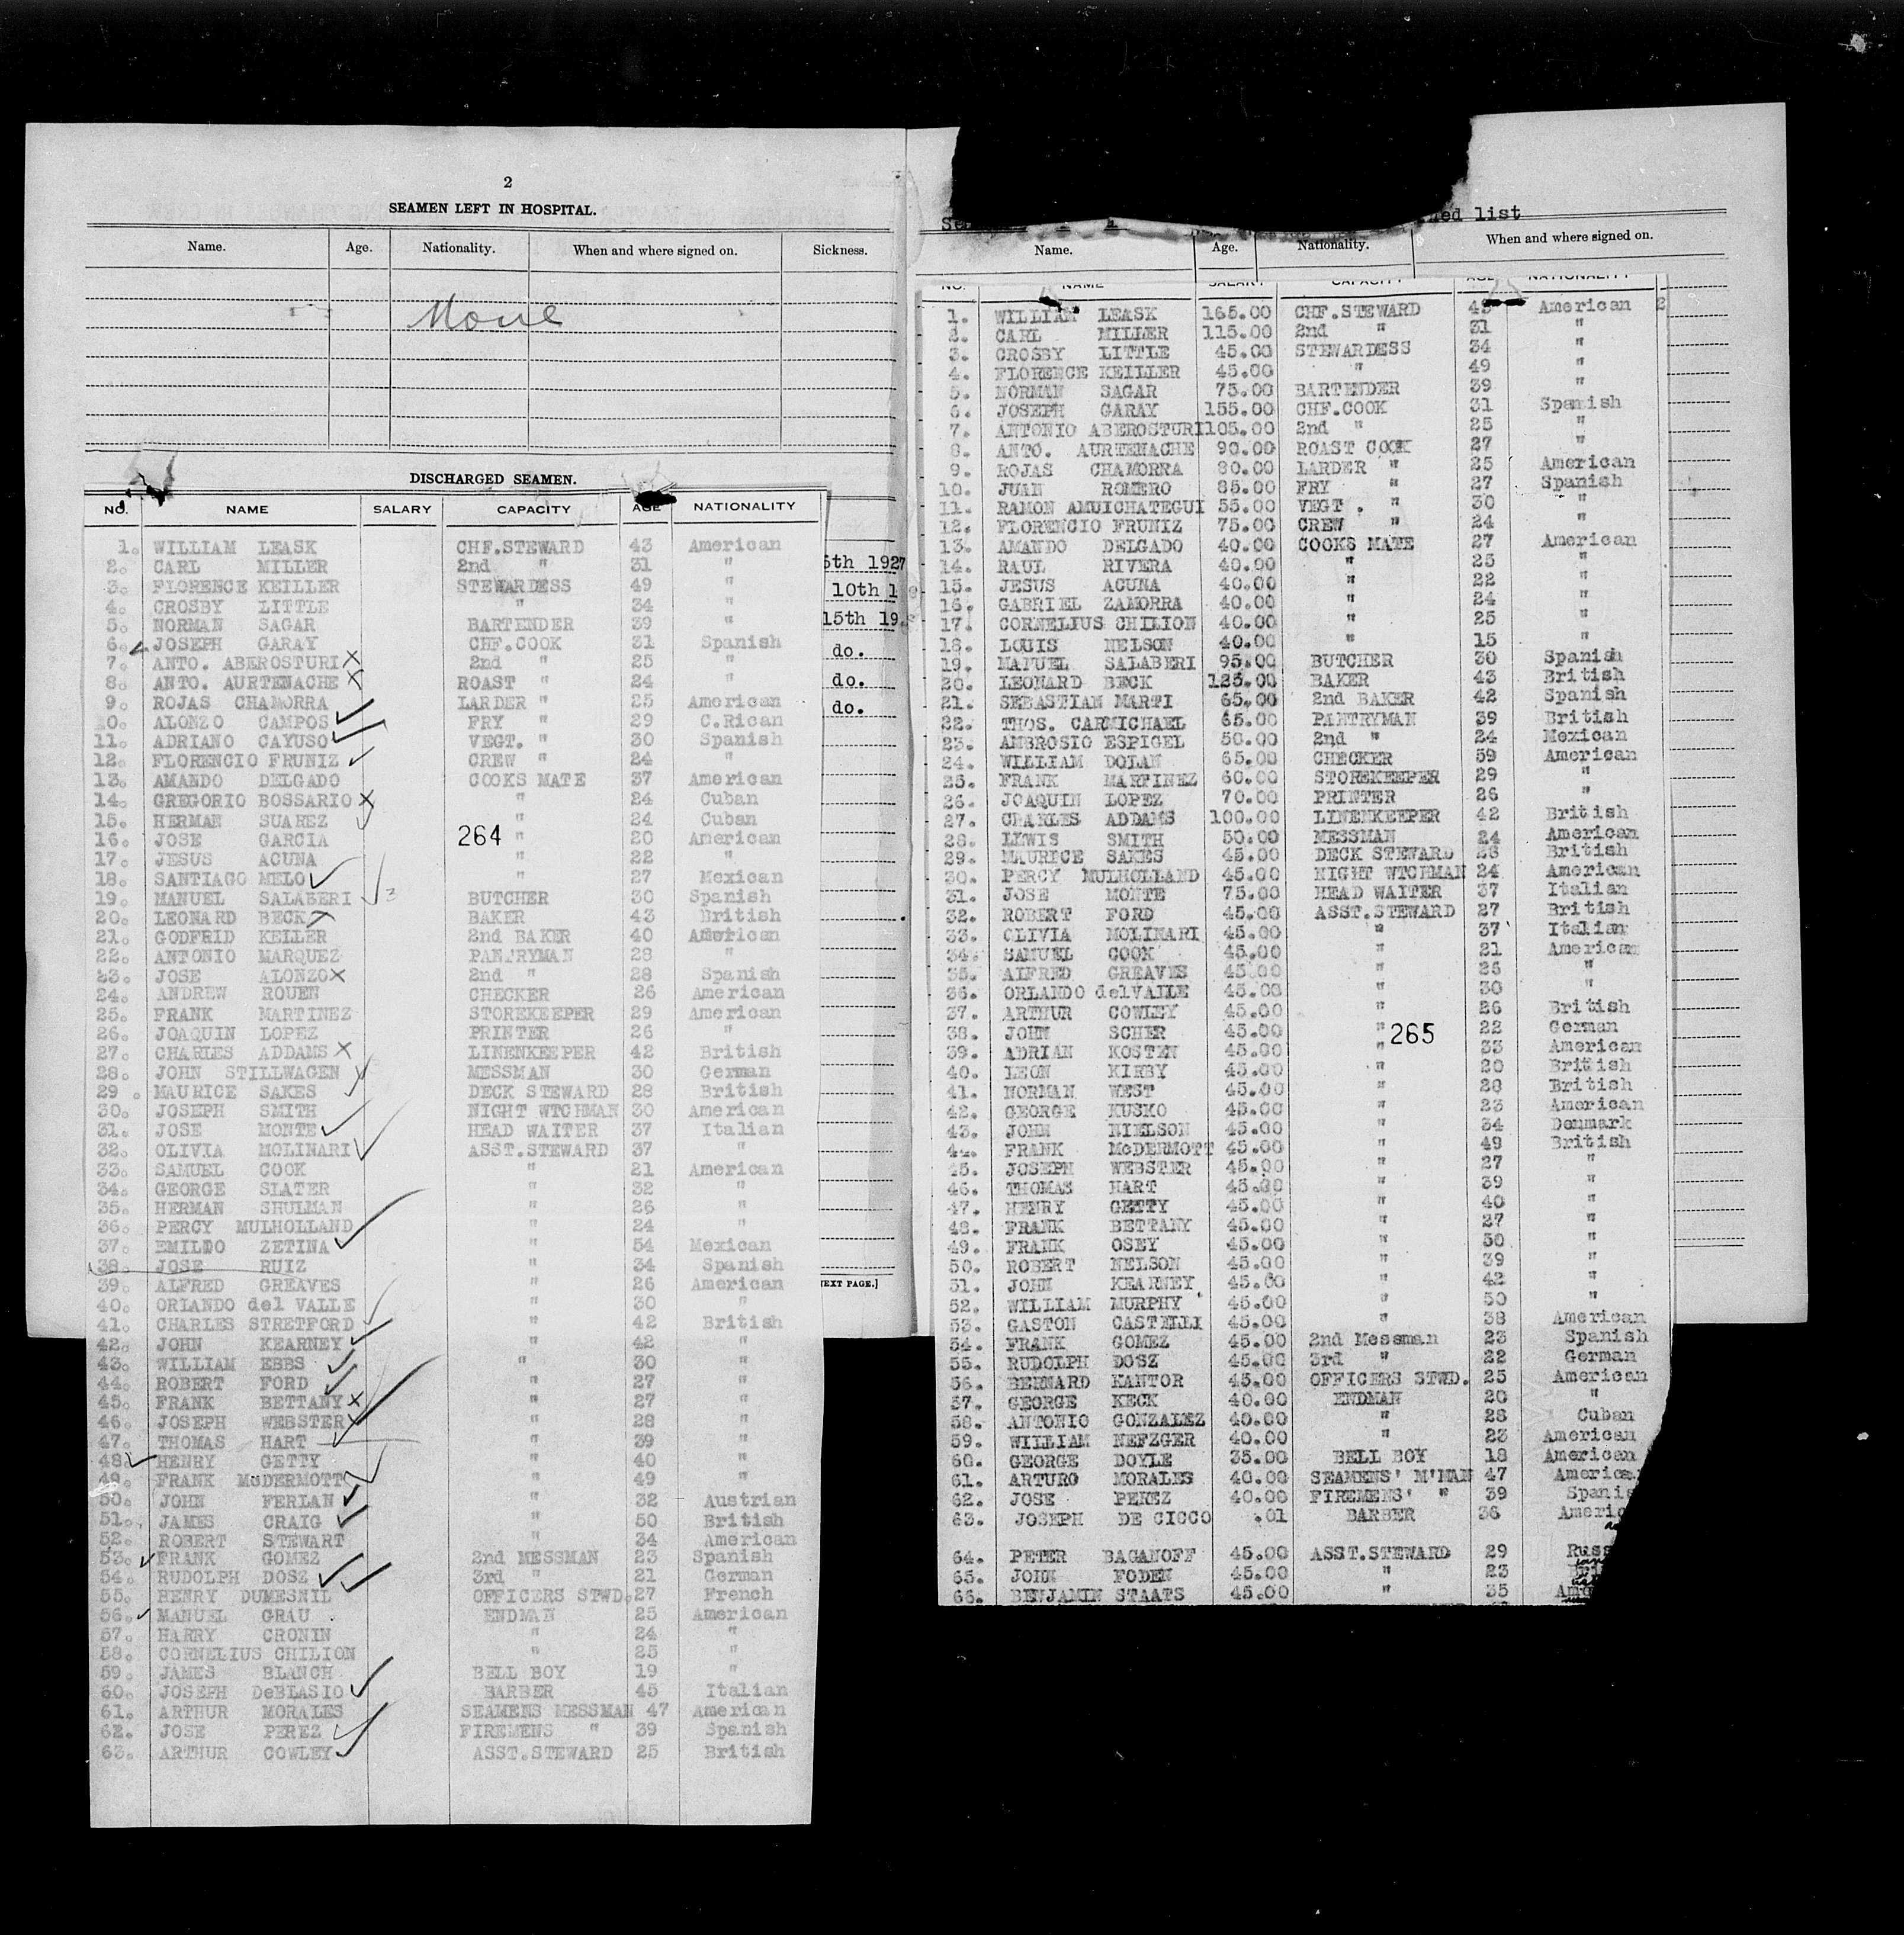 2
SEAMEN LEFT IN HOSPITAL.
Name. Age. Nationality. When and where signed on. Sickness.
None
DISCHARGED SEAMEN.
NO. NAME SALARY CAPACITY AGE NATIONALITY
1. WILLIAM LEASK CHF.STEWARD 43 American
2. CARL MILLER 2nd " 31 "
3. FLORENCE KEILLER STEWARDESS 49 "
4. CROSBY LITTLE " 34 "
5. NORMAN SAGAR BARTENDER 39 "
6. JOSEPH GARAY CHF.COOK 31 Spanish
7. ANTO. ABEROSTURI 2nd " 25 "
8. ANTO. AURTENACHE ROAST " 24 "
9. ROJAS CHAMORRA LARDER " 25 American
10. ALONZO CAMPOS FRY " 29 C.Rican
11. ADRIANO CAYUSO VEGT. " 30 Spanish
12. FLORENCIO FRUNIZ CREW " 24 "
13. AMANDO DELGADO COOKS MATE 37 American
14. GREGORIO BOSSARIO " 24 Cuban
15. HERMAN SUAREZ " 24 Cuban
16. JOSE GARCIA " 20 American
264
17. JESUS ACUNA " 22 "
18. SANTIAGO MELO " 27 Mexican
19. MANUEL SALABERI BUTCHER 30 Spanish
20. LEONARD BECK BAKER 43 British
21. GODFRID KELLER 2nd BAKER 40 American
22. ANTONIO MARQUEZ PANTRYMAN 28 "
23. JOSE ALONZO 2nd " 28 Spanish
24. ANDREW ROUEN CHECKER 26 American
25. FRANK MARTINEZ STOREKEEPER 29 American
26. JOAQUIN LOPEZ PRINTER 26 "
27. CHARLES ADDAMS LINENKEEPER 42 British
28. JOHN STILLWAGEN MESSMAN 30 German
29. MAURICE SAKES DECK STEWARD 28 British
30. JOSEPH SMITH NIGHT WTCHMAN 30 American
31. JOSE MONTE HEAD WAITER 37 Italian
32. OLIVIA MOLINARI ASST.STEWARD 37 "
33. SAMUEL COOK " 21 American
34. GEORGE SLATER " 32 "
35. HERMAN SHULMAN " 26 "
36. PERCY MULHOLLAND " 24 "
37. EMILDO ZETINA " 54 Mexican
38. JOSE RUIZ " 34 Spanish
39. ALFRED GREAVES " 26 American
40. ORLANDO del VALLE " 30 "
41. CHARLES STRETFORD " 42 British
42. JOHN KEARNEY " 42 "
43. WILLIAM EBBS " 30 "
44. ROBERT FORD " 27 "
45. FRANK BETTANY " 27 "
46. JOSEPH WEBSTER " 28 "
47. THOMAS HART " 39 "
48. HENRY GETTY " 40 "
49. FRANK McDERMOTT " 49 "
50. JOHN FERLAN " 32 Austrian
51. JAMES CRAIG " 50 British
52. ROBERT STEWART " 34 American
53. FRANK GOMEZ 2nd MESSMAN 23 Spanish
54. RUDOLPH DOSZ 3rd " 21 German
55. HENRY DUMESNIL OFFICERS STWD. 27 French
56. MANUEL GRAU ENDMAN 25 American
57. HARRY CRONIN " 24 "
58. CORNELIUS CHILION " 25 "
59. JAMES BLANCH BELL BOY 19 "
60. JOSEPH DeBLASIO BARBER 45 Italian
61. ARTHUR MORALES SEAMENS MESSMAN 47 American
62. JOSE PEREZ FIREMENS " 39 Spanish
63. ARTHUR COWLEY ASST.STEWARD 25 British
5th 1927
10th 1
15th 19
do.
do.
do.
EXT PAGE.]
ned list
Name. Age. Nationality. When and where signed on.
NO. NAME SALARY CAPACITY AGE NATIONALITY
1. WILLIAM LEASK 165.00 CHF.STEWARD 43 American 2
2. CARL MILLER 115.00 2nd " 31 "
3. CROSBY LITTLE 45.00 STEWARDESS 34 "
4. FLORENCE KEILLER 45.00 " 49 "
5. NORMAN SAGAR 75.00 BARTENDER 39 "
6. JOSEPH GARAY 155.00 CHF.COOK 31 Spanish
7. ANTONIO ABEROSTURI 105.00 2nd " 25 "
8. ANTO. AURTENACHE 90.00 ROAST COOK 27 "
9. ROJAS CHAMORRA 80.00 LARDER " 25 American
10. JUAN ROMERO 85.00 FRY " 27 Spanish
11. RAMON AMUICHATEGUI 55.00 VEGT . " 30 "
12. FLORENCIO FRUNIZ 75.00 CREW " 24 "
13. AMANDO DELGADO 40.00 COOKS MATE 27 American
14. RAUL RIVERA 40.00 " 25 "
15. JESUS ACUNA 40.00 " 22 "
16. GABRIEL ZAMORRA 40.00 " 24 "
17. CORNELIUS CHILION 40.00 " 25 "
18. LOUIS NELSON 40.00 " 15 "
19. MANUEL SALABERI 95.00 BUTCHER 30 Spanish
20. LEONARD BECK 125.00 BAKER 43 British
21. SEBASTIAN MARTI 65.00 2nd BAKER 42 Spanish
22. THOS. CARMICHAEL 65.00 PANTRYMAN 39 British
23. AMBROSIO ESPIGEL 50.00 2nd " 24 Mexican
24. WILLIAM DOLAN 65.00 CHECKER 59 American
25. FRANK MARTINEZ 60.00 STOREKEEPER 29 "
26. JOAQUIN LOPEZ 70.00 PRINTER 26 "
27. CHARLES ADDAMS 100.00 LINENKEEPER 42 British
28. LEWIS SMITH 50.00 MESSMAN 24 American
29. MAURICE SAKES 45.00 DECK STEWARD 28 British
30. PERCY MULHOLLAND 45.00 NIGHT WTCHMAN 24 American
31. JOSE MONTE 75.00 HEAD WAITER 37 Italian
32. ROBERT FORD 45.00 ASST.STEWARD 27 British
33. OLIVIA MOLINARI 45.00 " 37 Italian
34. SAMUEL COOK 45.00 " 21 American
35. ALFRED GREAVES 45.00 " 26 "
36. ORLANDO delVALLE 45.00 " 30 "
37. ARTHUR COWLEY 45.00 " 26 British
38. JOHN SCHER 45.00 " 22 German
265
39. ADRIAN KOSTEN 45.00 " 33 American
40. LEON KIRBY 45.00 " 20 British
41. NORMAN WEST 45.00 " 28 British
42. GEORGE KUSKO 45.00 " 23 American
43. JOHN NIELSON 45.00 " 34 Denmark
44. FRANK McDERMOTT 45.00 " 49 British
45. JOSEPH WEBSTER 45.00 " 27 "
46. THOMAS HART 45.00 " 39 "
47. HENRY GETTY 45.00 " 40 "
48. FRANK BETTANY 45.00 " 27 "
49. FRANK OSEY 45.00 " 50 "
50. ROBERT NELSON 45.00 " 39 "
51. JOHN KEARNEY 45.00 " 42 "
52. WILLIAM MURPHY 45.00 " 50 "
53. GASTON CASTELLI 45.00 " 38 American
54. FRANK GOMEZ 45.00 2nd Messman 23 Spanish
55. RUDOLPH DOSZ 45.00 3rd " 22 German
56. BERNARD KANTOR 45.00 OFFICERS STWD. 25 American
57. GEORGE KECK 40.00 ENDMAN 20 "
58. ANTONIO GONZALEZ 40.00 " 28 Cuban
59. WILLIAM NEFZGER 40.00 " 23 American
60. GEORGE DOYLE 35.00 BELL BOY 18 American
61. ARTURO MORALES 40.00 SEAMENS' M'MAN 47 America
62. JOSE PEREZ 40.00 FIREMENS' " 39 Spanis
63. JOSEPH DE CICCO .01 BARBER 36 Americ
64. PETER BAGANOFF 45.00 ASST.STEWARD 29 Russ
65. JOHN FODEN 45.00 " 23 Bri
66. BENJAMIN STAATS 45.00 " 35 Am